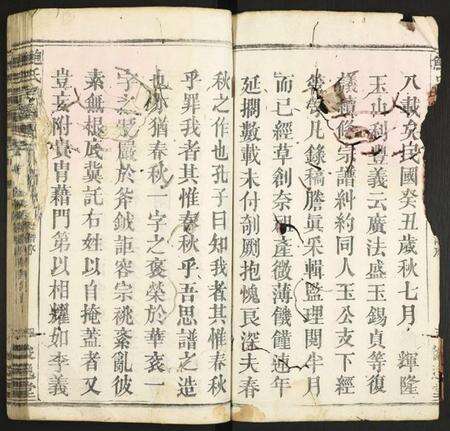 八載矣民國癸丑歲秋七月 輝隆
玉山利豐義云廣法盛玉錫貞等復
議續修宗譜糾約同人玉公支下經
凡錄稿謄眞采輯監理閱半月
而已經草創奈祠產微薄饑饉連年
延擱數載未付剞劂抱愧良深夫春
秋之作也孔子曰知我者其惟春秋
乎罪我者其惟春秋乎吾思譜之造
也亦猶春秋一字之褒榮於華袞一
字之貶嚴於斧鉞詎容宗祧紊亂彼
素無根底冀託右姓以自掩蓋者又
豈妄附貴冑藉門第以相耀如李義
鮑氏